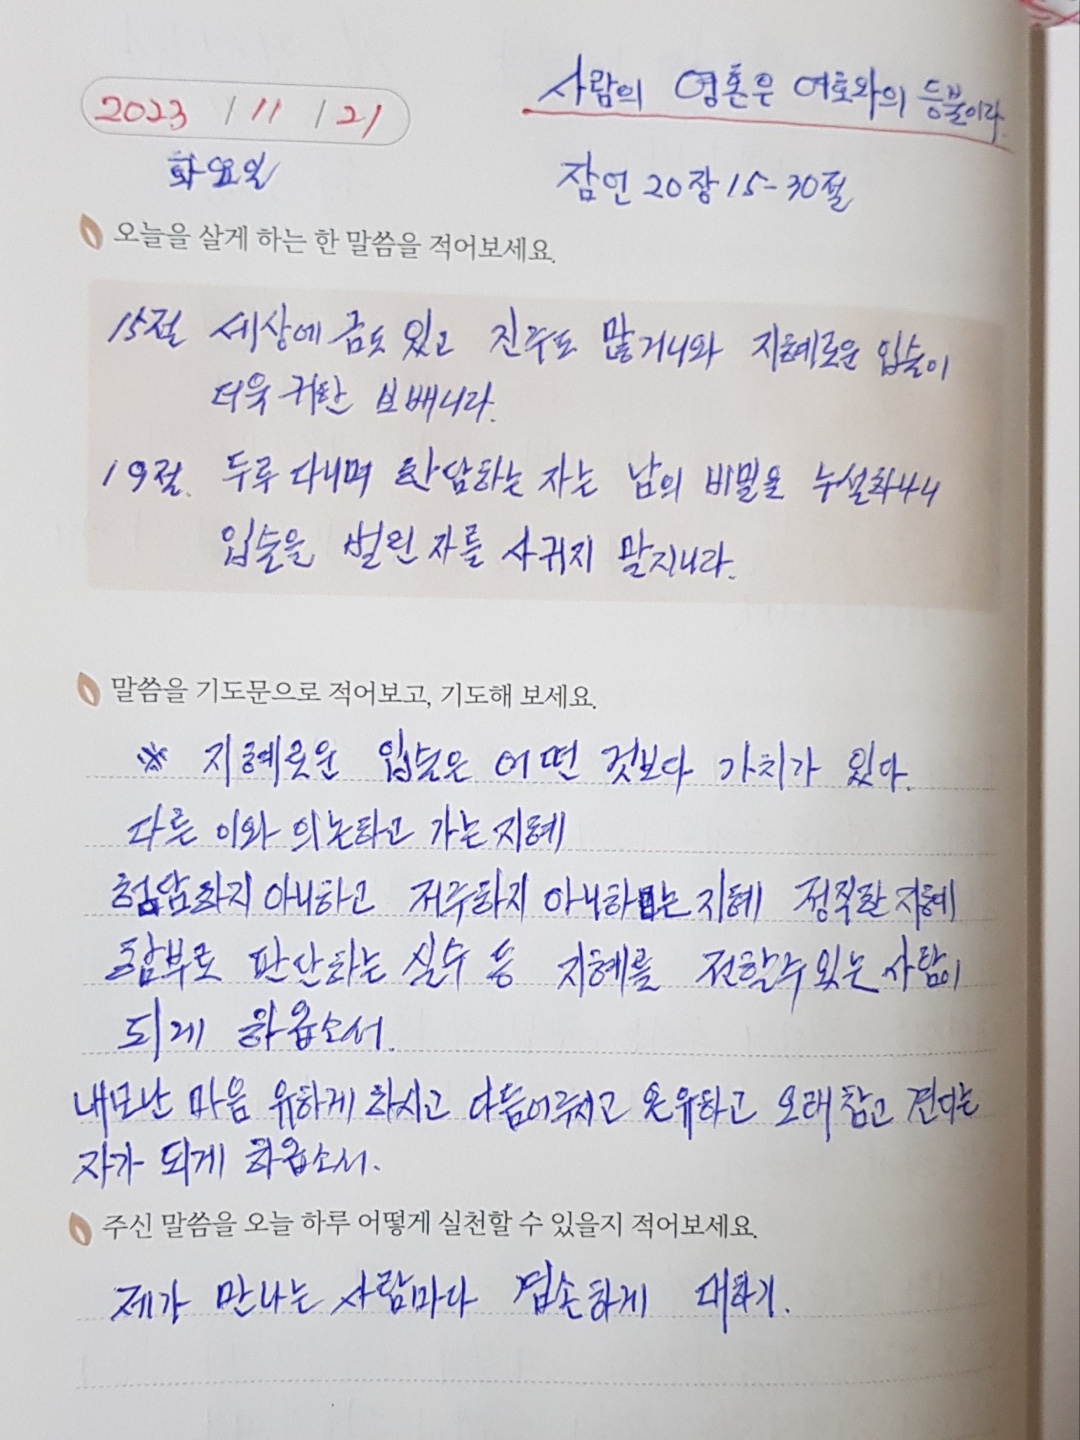 2023 / 11 / 21
사람의 영혼은 여호와의 등불이라.
화요일
잠언 20장 15-30절
오늘을 살게 하는 한 말씀을 적어보세요.
15절 세상에 금도 있고 진주도 많거니와 지혜로운 입술이
더욱 귀한 보배니라.
19절. 두루 다니며 한담하는 자는 남의 비밀을 누설하나니
입술을 벌린 자를 사귀지 말지니라.
말씀을 기도문으로 적어보고, 기도해 보세요.
※ 지혜로운 입술은 어떤 것보다 가치가 있다.
다른 이와 의논하고 가는 지혜
험담하지 아니하고 저주하지 아니하는 지혜 정직한 지혜
함부로 판단하는 실수 등 지혜를 전할수 있는 사람이
되게 하옵소서.
내모난 마음 유하게 하시고 다듬어주시고 온유하고 오래 참고 견디는
자가 되게 하옵소서.
주신 말씀을 오늘 하루 어떻게 실천할 수 있을지 적어보세요.
제가 만나는 사람마다 겸손하게 대하기.